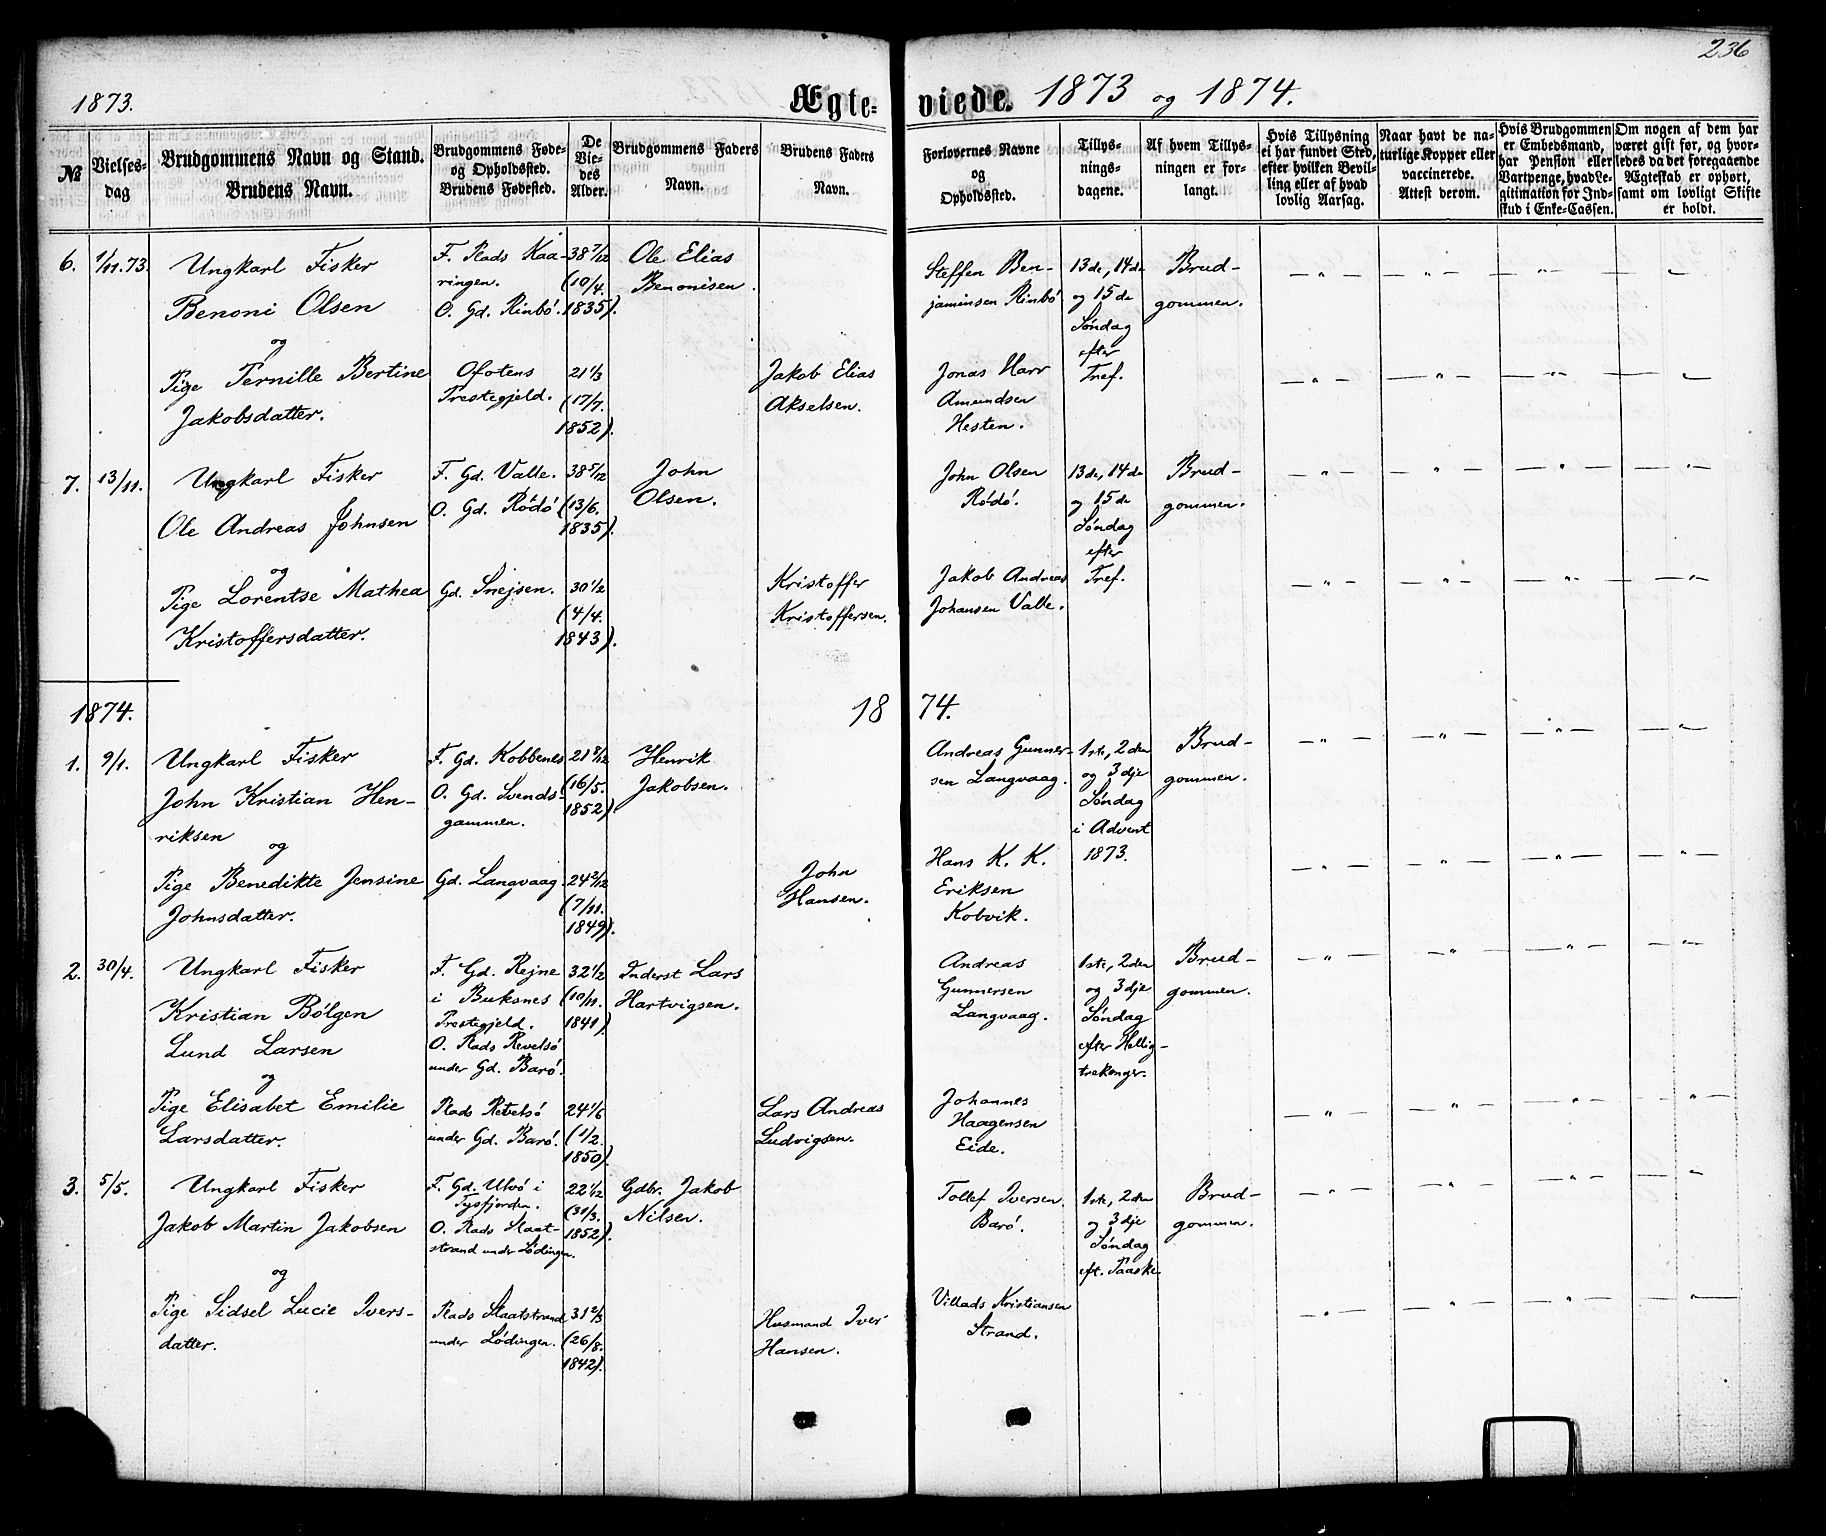 236
1873.
Ægte-
viede. 1873 og 1874.
№
Vielses-
dag
Brudgommens Navn og Stand.
Brudens Navn.
Brudgommens Føde-
og Opholdssted.
Brudens Fødested.
De
Vie-
des
Alder.
Brudgommens Faders
Navn.
Brudens Faders
Navn.
Forlovernes Navne
og
Opholdssted.
Tillys-
nings-
dagene.
Af hvem Tillys-
ningen er for-
langt.
Hvis Tillysning
ei har fundet Sted,
efter hvilken Bevil-
ling eller af hvad
lovlig Aarsag.
Naar havt de na-
turlige Kopper eller
vaccinerede.
Attest derom.
Hvis Brudgommen
er Embedsmand,
har Pension eller
Vartpenge, hvad Le-
gitimation for Ind-
skud i Enke-Cassen.
Om nogen af dem har
været gift før, og hvor-
ledes da det foregaaende
Ægteskab er ophørt,
samt om lovligt Skifte
er holdt.
6.
1/11.73.
Ungkarl Fisker
Benoni Olsen
og
Pige Pernille Bertine
Jakobsdatter.
F. Plads Kaa-
ringen.
O. Gd. Rinbö.
Ofotens
Prestegjeld.
38 7/12
(10/4.
1835).
21 1/3
(17/7.
1852).
Ole Elias
Benonisen.
Jakob Elias
Akselsen.
Steffen Ben-
jaminsen Rinbö
Jonas Harr
Amundsen
Hesten.
13de, 14de
og 15de
Söndag
efter
Tref.
Brud-
gommen.
7.
13/11.
Ungkarl Fisker
Ole Andreas Johnsen
og
Pige Lorentse Mathea
Kristoffersdatter.
F. Gd. Valle.
O. Gd. Rödö
Gd. Snejsen.
38 5/12
(13/6.
1835).
30 1/2
(4/4.
1843).
John
Olsen.
Kristoffer
Kristoffersen.
John Olsen
Rödö.
Jakob Andreas
Johansen Valle.
13de, 14de
og 15de
Söndag
efter
Tref.
Brud-
gommen.
1874.
1874.
1.
9/1.
Ungkarl Fisker
John Kristian Hen-
riksen
og
Pige Benedikte Jensine
Johnsdatter.
F. Gd. Kobbenes
O. Gd. Svends-
gammen.
Gd. Langvaag.
21 8/12
(16/5.
1852).
24 2/12
(7/11.
1849).
Henrik
Jakobsen.
John
Hansen.
Andreas Gunner-
sen Langvaag.
Hans K. K.
Eriksen
Kobvik.
1ste, 2den
og 3dje
Söndag
i Advent
1873.
Brud-
gommen.
2.
30/4.
Ungkarl Fisker
Kristian Bölgen
Lund Larsen
og
Pige Elisabet Emilie
Larsdatter.
F. Gd. Rejne
i Buksnes
Prestegjeld.
O. Plads Revelsö
under Gd. Barö.
Plads Revelsö
under Gd. Barö.
32 1/2
(10/11.
1841)
24 1/6
(1/2.
1850).
Inderst Lars
Hartvigsen.
Lars Andreas
Ludvigsen.
Andreas
Gunnersen
Langvaag.
Johannes
Haagensen
Eide.
1ste, 2den
og 3dje
Söndag
efter Hellig-
trekonger.
Brud-
gommen.
3.
5/5.
Ungkarl Fisker
Jakob Martin Jakobsen
og
Pige Sidsel Lucie Ivers-
datter.
F. Gd. Ulvö i
Tysfjorden.
O. Plads Staat-
strand under Lödingen.
Plads Staatstrand
under Lödingen.
22 1/12
(31/3.
1852).
31 2/3
(26/8.
1842).
Gdbr. Jakob
Nilsen.
Husmand Iver
Hansen.
Tollef Iversen
Barö.
Villads Kristiansen
Strand.
1ste, 2den
og 3dje
Söndag
eft. Paaske.
Brud-
gommen.